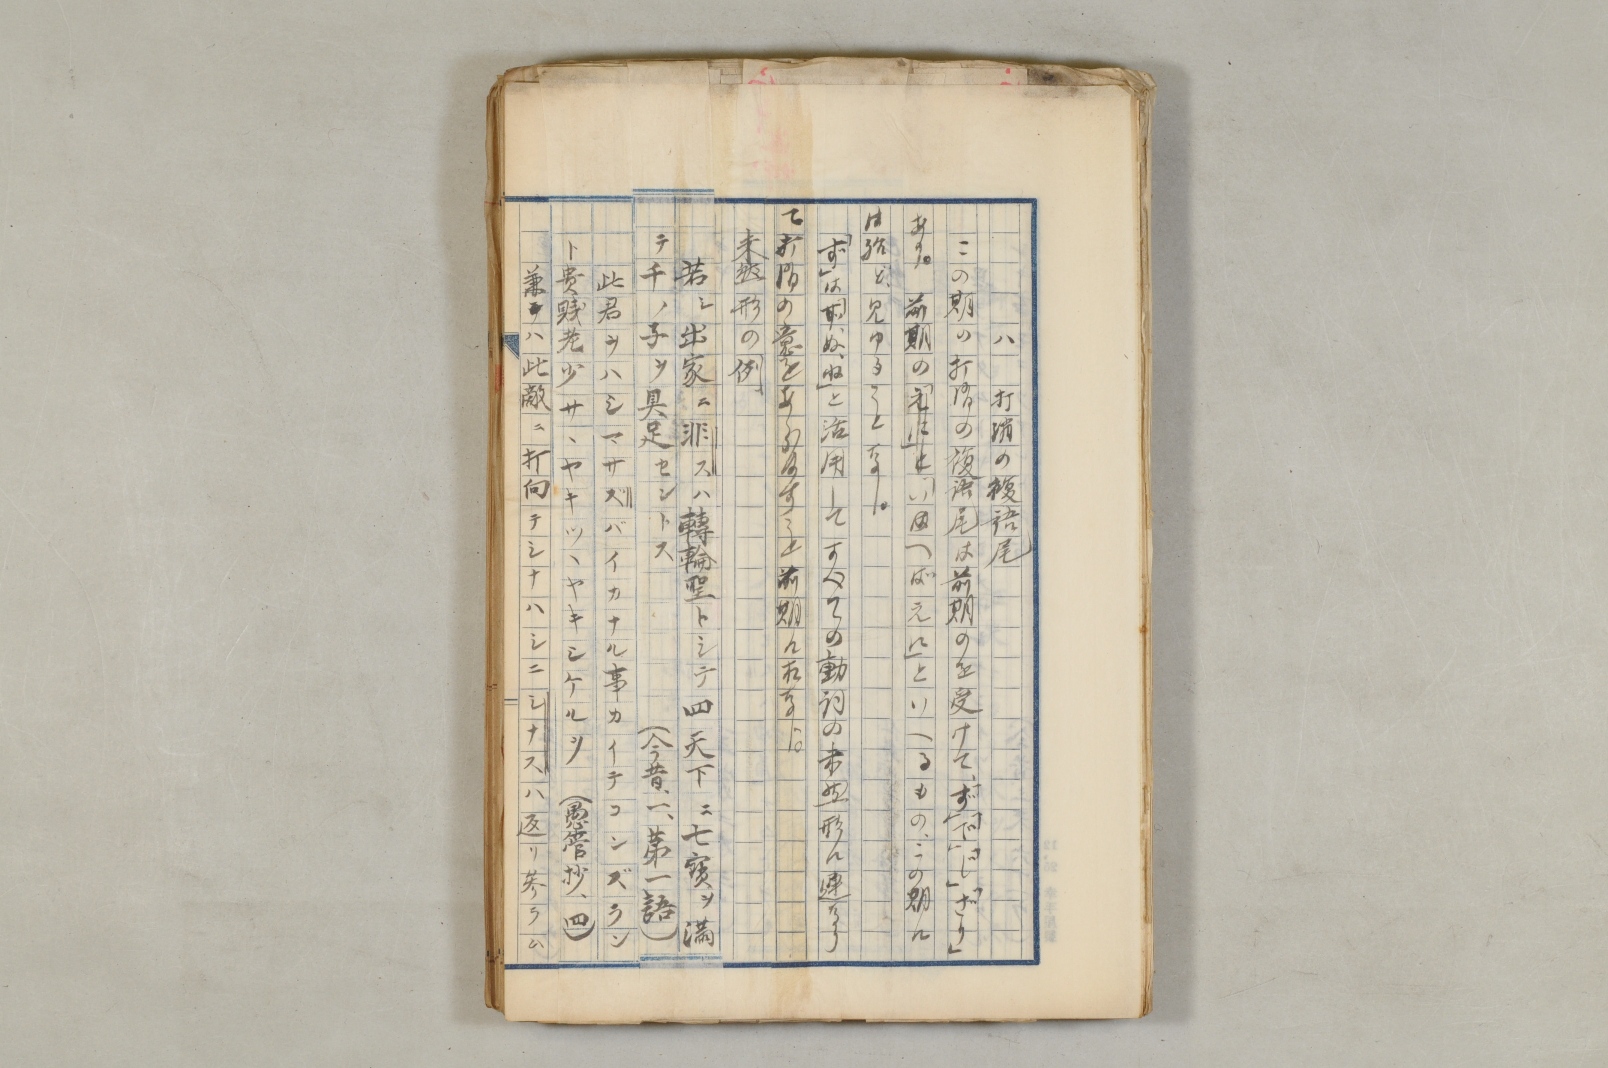 八　打消の複語尾
この期の打消の複語尾は前期のを受けて、「ず」「で」「じ」「ざり」
あり。前期の「え」に」といへるもの、この期に
は殆ど見ゆることなし。
「ず」は「ず、ぬ、ね」と活用してすべての動詞の未然形に連なり
て打消の意をあらはすこと前期に於なじ。
未然形の例、
若シ出家ニ非ズハ轉輪聖トシテ四天下ニ七寶ヲ滿
テ千ノ子ヲ具足セントス　（今昔、一、第一語）
此君ヲハシマサズバイカナル事カイデコンズラン
ト貴賤老少サヽヤキツヽヤキシケルヲ　（愚管抄、四）
兼ヲハ此敵ニ打向テシナハシニシナスハ返リ参ラム